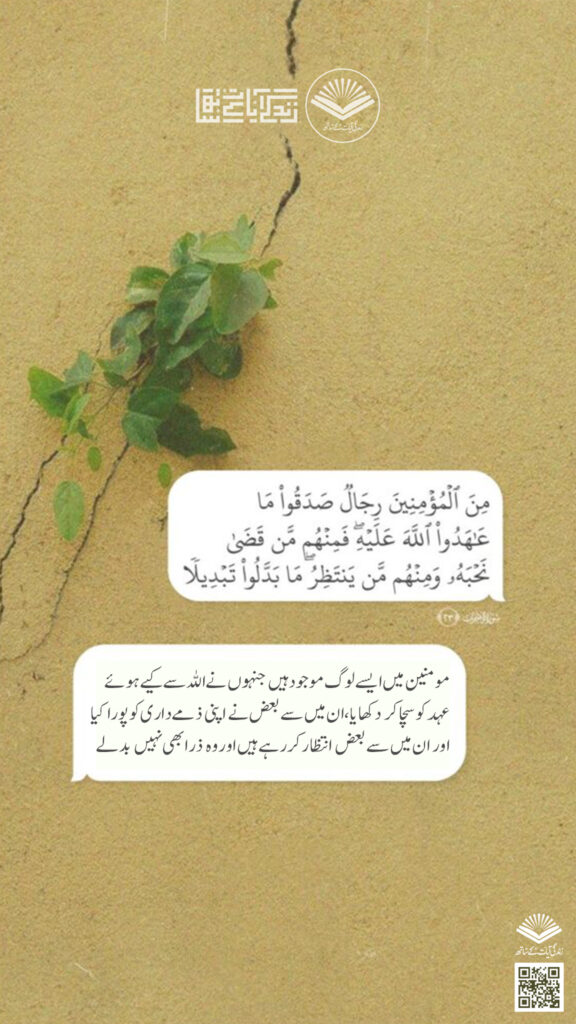 زندگی با آیات
زندگی آیات کے ساتھ
مِنَ ٱلْمُؤْمِنِينَ رِجَالٌ صَدَقُوا۟ مَا
عَـٰهَدُوا۟ ٱللَّهَ عَلَيْهِ ۖ فَمِنْهُم مَّن قَضَىٰ
نَحْبَهُۥ وَمِنْهُم مَّن يَنتَظِرُ ۖ مَا بَدَّلُوا۟ تَبْدِيلًا
سورة الأحزاب ﴿٢٣﴾
مومنین میں ایسے لوگ موجود ہیں جنہوں نے اللہ سے کیے ہوئے
عہد کو سچا کر دکھایا،ان میں سے بعض نے اپنی ذمے داری کو پورا کیا
اور ان میں سے بعض انتظار کر رہے ہیں اور وہ ذرا بھی نہیں بدلے
زندگی آیات کے ساتھ